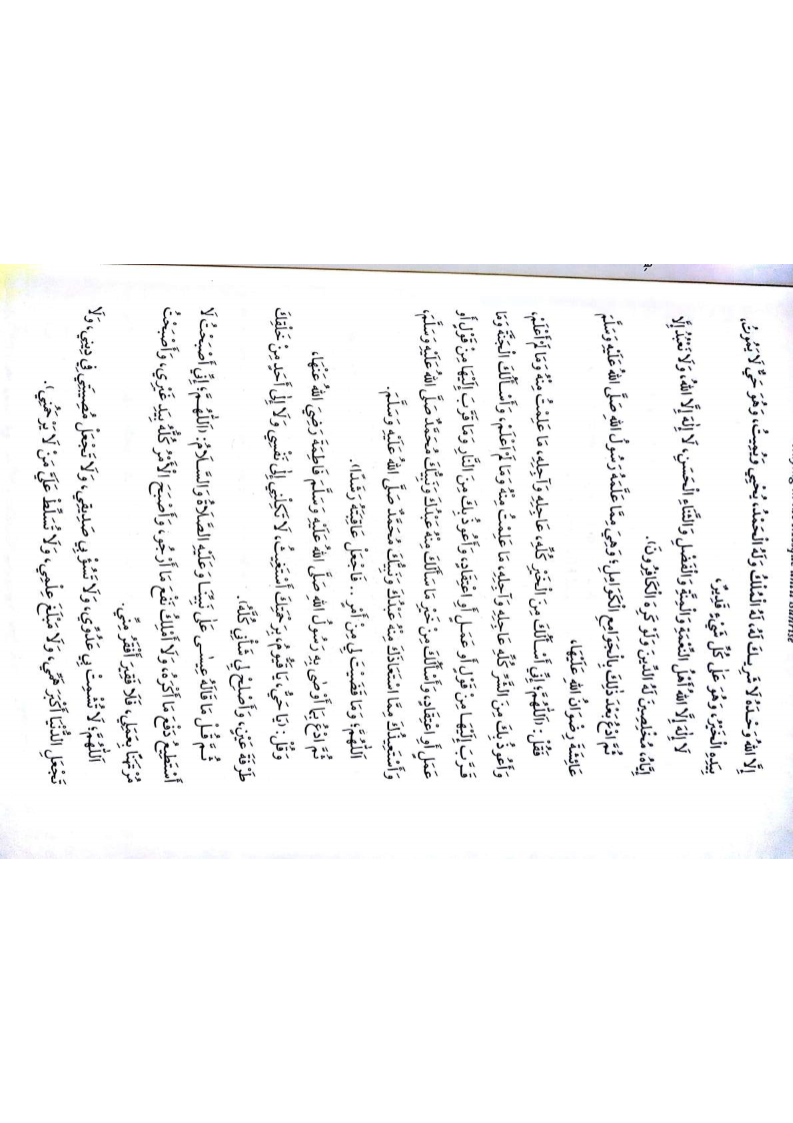 إِلَّا اللهُ وَحْدَهُ لَا شَرِيكَ لَهُ، لَهُ الْمُلْكُ وَلَهُ الْحَمْدُ، يُحْيِي وَيُمِيتُ، وَهُوَ حَيٌّ لَا يَمُوتُ،
بِيَدِهِ الْخَيْرُ، وَهُوَ عَلَى كُلِّ شَيْءٍ قَدِيرٌ.
لَا إِلٰهَ إِلَّا اللهُ أَهْلُ النِّعْمَةِ وَالْمِنَّةِ وَالْفَضْلِ وَالثَّنَاءِ الْحَسَنِ، لَا إِلٰهَ إِلَّا اللهُ، وَلَا نَعْبُدُ إِلَّا
إِيَّاهُ، مُخْلِصِينَ لَهُ الدِّينَ وَلَوْ كَرِهَ الْكَافِرُونَ).
ثُمَّ ادْعُ بَعْدَ ذٰلِكَ بِالْجَوَامِعِ الْكَوَامِلِ؛ وَهِيَ مِمَّا عَلَّمَهُ رَسُولُ اللهِ صَلَّى اللهُ عَلَيْهِ وَسَلَّمَ
عَائِشَةَ رِضْوَانُ اللهِ عَلَيْهَا،
فَقُلْ: (اَللّٰهُمَّ؛ إِنِّي أَسْأَلُكَ مِنَ الْخَيْرِ كُلِّهِ، عَاجِلِهِ وَآجِلِهِ، مَا عَلِمْتُ مِنْهُ وَمَا لَمْ أَعْلَمْ،
وَأَعُوذُ بِكَ مِنَ الشَّرِّ كُلِّهِ عَاجِلِهِ وَآجِلِهِ، مَا عَلِمْتُ مِنْهُ وَمَا لَمْ أَعْلَمْ، وَأَسْأَلُكَ الْجَنَّةَ وَمَا
قَرَّبَ إِلَيْهَا مِنْ قَوْلٍ أَوْ عَمَلٍ أَوِ اعْتِقَادٍ، وَأَعُوذُ بِكَ مِنَ النَّارِ وَمَا قَرَّبَ إِلَيْهَا مِنْ قَوْلٍ أَوْ
عَمَلٍ أَوِ اعْتِقَادٍ، وَأَسْأَلُكَ مِنْ خَيْرِ مَا سَأَلَكَ مِنْهُ عَبْدُكَ وَنَبِيُّكَ مُحَمَّدٌ صَلَّى اللهُ عَلَيْهِ وَسَلَّمَ،
وَأَسْتَعِيذُكَ مِمَّا اسْتَعَاذَكَ مِنْهُ عَبْدُكَ وَنَبِيُّكَ مُحَمَّدٌ صَلَّى اللهُ عَلَيْهِ وَسَلَّمَ.
اَللّٰهُمَّ؛ وَمَا قَضَيْتَ لِي مِنْ أَمْرٍ .. فَاجْعَلْ عَاقِبَتَهُ رَشَدًا).
ثُمَّ ادْعُ بِمَا أَوْصَى بِهِ رَسُولُ اللهِ صَلَّى اللهُ عَلَيْهِ وَسَلَّمَ فَاطِمَةَ رَضِيَ اللهُ عَنْهَا،
وَقُلْ: (يَا حَيُّ، يَا قَيُّومُ، بِرَحْمَتِكَ أَسْتَغِيثُ، لَا تَكِلْنِي إِلَى نَفْسِي وَلَا إِلَى أَحَدٍ مِنْ خَلْقِكَ
طَرْفَةَ عَيْنٍ، وَأَصْلِحْ لِي شَأْنِي كُلَّهُ).
ثُمَّ قُلْ مَا قَالَهُ عِيسَى عَلَى نَبِيِّنَا وَعَلَيْهِ الصَّلَاةُ وَالسَّلَامُ: (اَللّٰهُمَّ؛ إِنِّي أَصْبَحْتُ لَا
أَسْتَطِيعُ دَفْعَ مَا أَكْرَهُ، وَلَا أَمْلِكُ نَفْعَ مَا أَرْجُو، وَأَصْبَحَ الْأَمْرُ كُلُّهُ بِيَدِ غَيْرِي، وَأَصْبَحْتُ
مُرْتَهَنًا بِعَمَلِي، فَلَا فَقِيرَ أَفْقَرُ مِنِّي.
اَللّٰهُمَّ؛ لَا تُشْمِتْ بِي عَدُوِّي، وَلَا تَسُؤْ بِي صَدِيقِي، وَلَا تَجْعَلْ مُصِيبَتِي فِي دِينِي، وَلَا
تَجْعَلِ الدُّنْيَا أَكْبَرَ هَمِّي، وَلَا مَبْلَغَ عِلْمِي، وَلَا تُسَلِّطْ عَلَيَّ مَنْ لَا يَرْحَمُنِي).